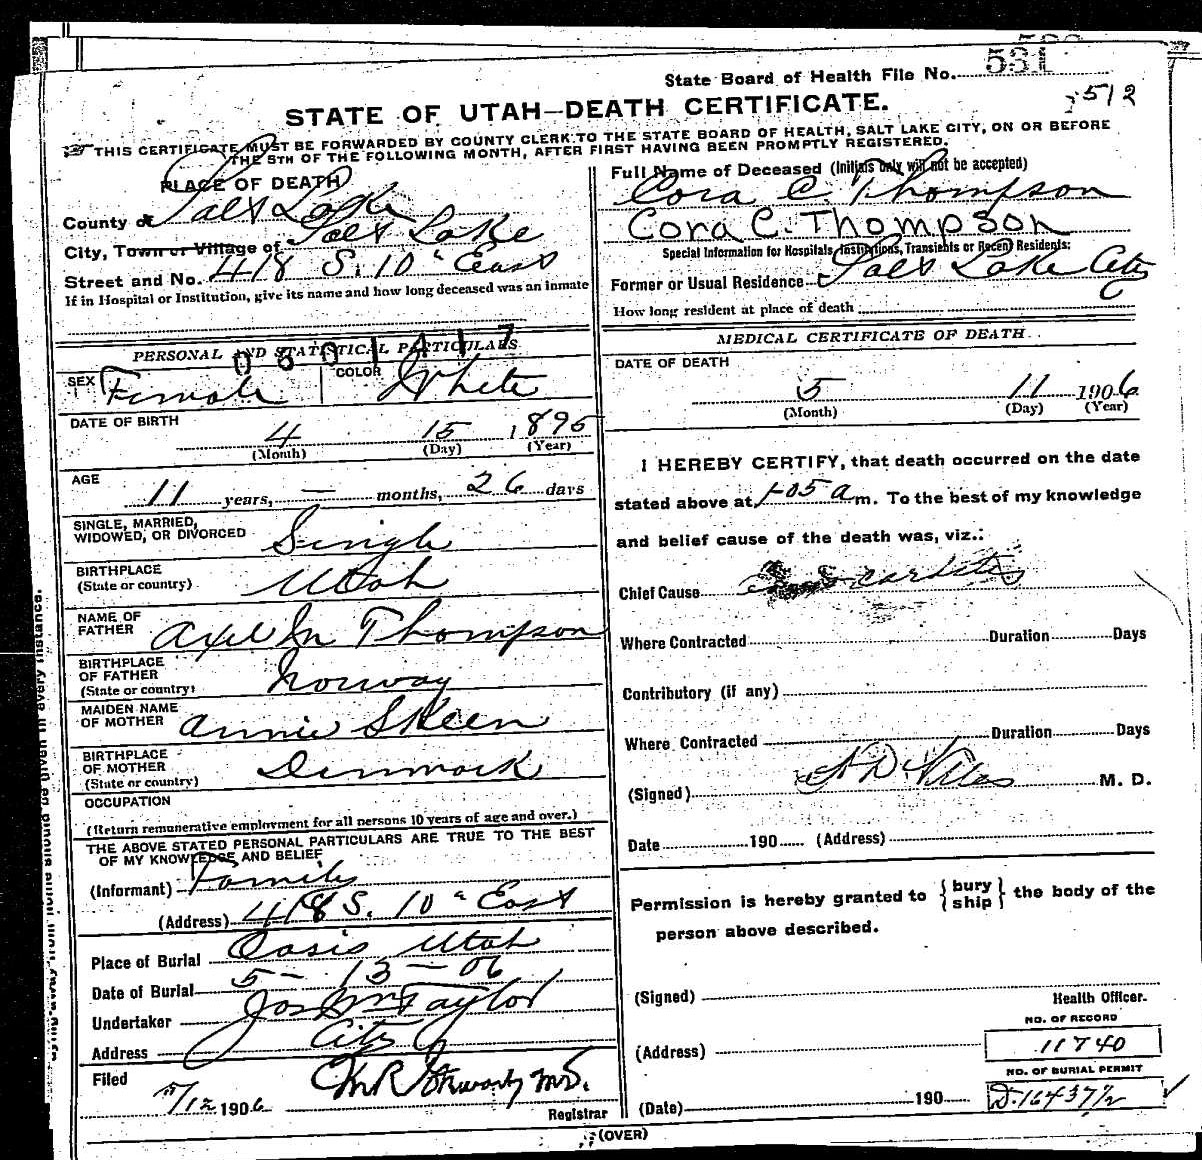 State Board of Health File No. 531
512
STATE OF UTAH—DEATH CERTIFICATE.
THIS CERTIFICATE MUST BE FORWARDED BY COUNTY CLERK TO THE STATE BOARD OF HEALTH, SALT LAKE CITY, ON OR BEFORE
THE 5TH OF THE FOLLOWING MONTH, AFTER FIRST HAVING BEEN PROMPTLY REGISTERED.
PLACE OF DEATH
County of Salt Lake
City, Town or Village of Salt Lake
Street and No. 418 S. 10" East
If in Hospital or Institution, give its name and how long deceased was an inmate
PERSONAL AND STATISTICAL PARTICULARS
0601417
SEX Female COLOR White
DATE OF BIRTH
4 15 1895
(Month) (Day) (Year)
AGE
11 years, — months, 26 days
SINGLE, MARRIED,
WIDOWED, OR DIVORCED Single
BIRTHPLACE
(State or country) Utah
NAME OF
FATHER Axel M Thompson
BIRTHPLACE
OF FATHER
(State or country) Norway
MAIDEN NAME
OF MOTHER Annie Skeen
BIRTHPLACE
OF MOTHER
(State or country) Denmark
OCCUPATION
(Return remunerative employment for all persons 10 years of age and over.)
THE ABOVE STATED PERSONAL PARTICULARS ARE TRUE TO THE BEST
OF MY KNOWLEDGE AND BELIEF
(Informant) Family
(Address) 418 S. 10" East
Place of Burial Oasis Utah
Date of Burial 5-13-06
Undertaker Jos Wm Taylor
Address City
Filed
5/12 1906 M.D.
Registrar
Full Name of Deceased (Initials only will not be accepted)
Cora C. Thompson
Cora C. Thompson
Special Information for Hospitals, Institutions, Transients or Recent Residents:
Former or Usual Residence Salt Lake City
How long resident at place of death
MEDICAL CERTIFICATE OF DEATH
DATE OF DEATH
5 11 1906
(Month) (Day) (Year)
I HEREBY CERTIFY, that death occurred on the date
stated above at 1-05 a m. To the best of my knowledge
and belief cause of the death was, viz.:
Chief Cause
Where Contracted Duration Days
Contributory (if any)
Where Contracted Duration Days
(Signed) M. D.
Date 190 (Address)
Permission is hereby granted to { bury ship } the body of the
person above described.
(Signed)
Health Officer.
NO. OF RECORD
(Address) 11740
NO. OF BURIAL PERMIT
(Date) 190 D. 16437½
(OVER)